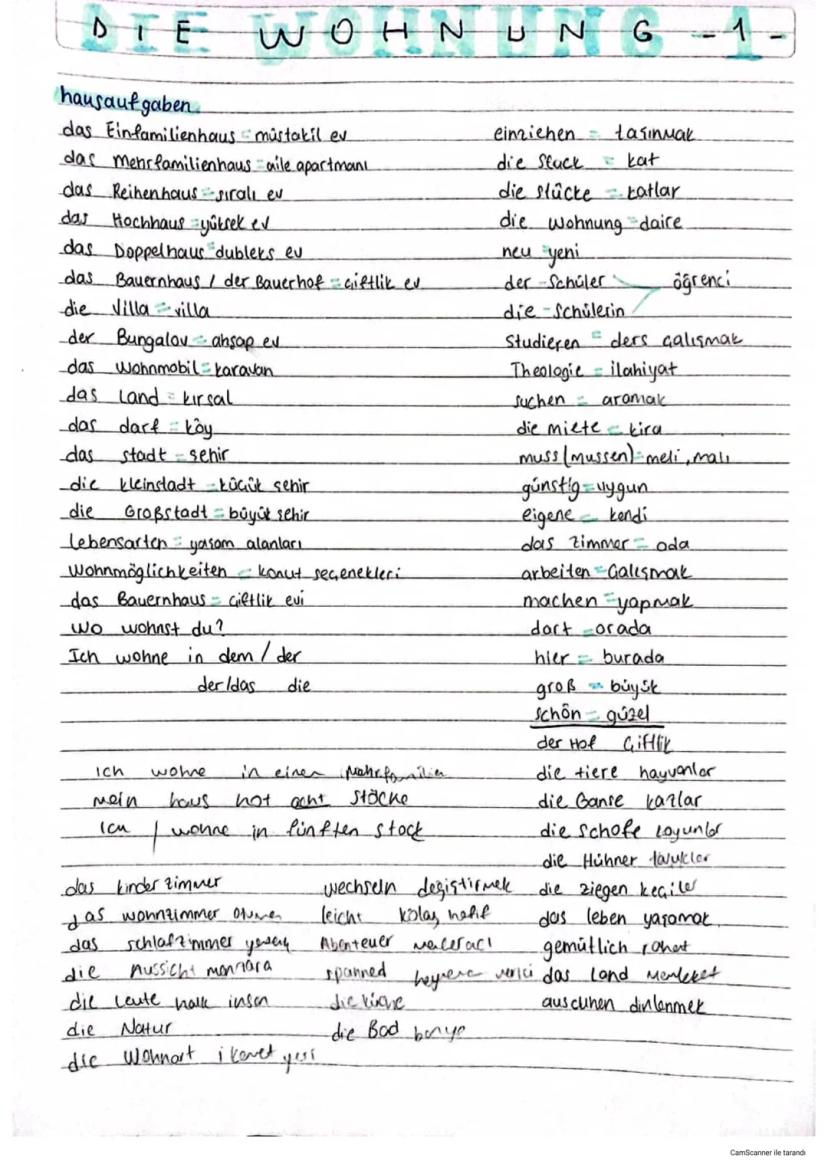 DIE WOHNUNG -1-
hausaufgaben
das Einfamilienhaus = müstakil ev
das Mehrfamilienhaus = aile apartmanı
das Reihenhaus = sıralı ev
das Hochhaus = yüksek ev
das Doppelhaus = dubleks ev
das Bauernhaus / der Bauerhof = çiftlik ev
die Villa = villa
der Bungalov = ahşap ev
das Wohnmobil = karavan
das Land = kırsal
das darf = köy
das stadt = şehir
die kleinstadt = küçük şehir
die Großstadt = büyük şehir
Lebensarten = yaşam alanları
Wohnmöglichkeiten = konut seçenekleri
das Bauernhaus = çiftlik evi
Wo wohnst du?
Ich wohne in dem / der
der/das die
einziehen = taşınmak
die Stuck = kat
die stücke = katlar
die Wohnung = daire
neu = yeni
der Schüler öğrenci
die Schülerin
Studieren = ders çalışmak
Theologie = ilahiyat
suchen = aramak
die miete = kira
muss (mussen) = meli, malı
günstig = uygun
eigene = kendi
das zimmer = oda
arbeiten = Çalışmak
machen = yapmak
dort = orada
hier = burada
groß = büyük
schön = güzel
der Hof Çiftlik
die tiere hayvanlar
die Ganse kazlar
die Schafe koyunlar
die Hühner tavuklar
die ziegen keçiler
das leben yaşamak
gemütlich rahat
das Land Memleket
auscuhen dinlenmek
Ich wohne in einen Mehrfamilien
Mein haus hat acht Stöcke
Ich / wohne in fünften stock
das kinderzimmer
das wohnzimmer
das schlafzimmer
die Aussicht manzara
die Leute halk insan
die Natur
die Wohnart
wechseln değiştirmek
leicht kolay hafif
Abenteuer maceracı
spanned verici
die küche
die Bad banyo
CamScanner ile tarandı